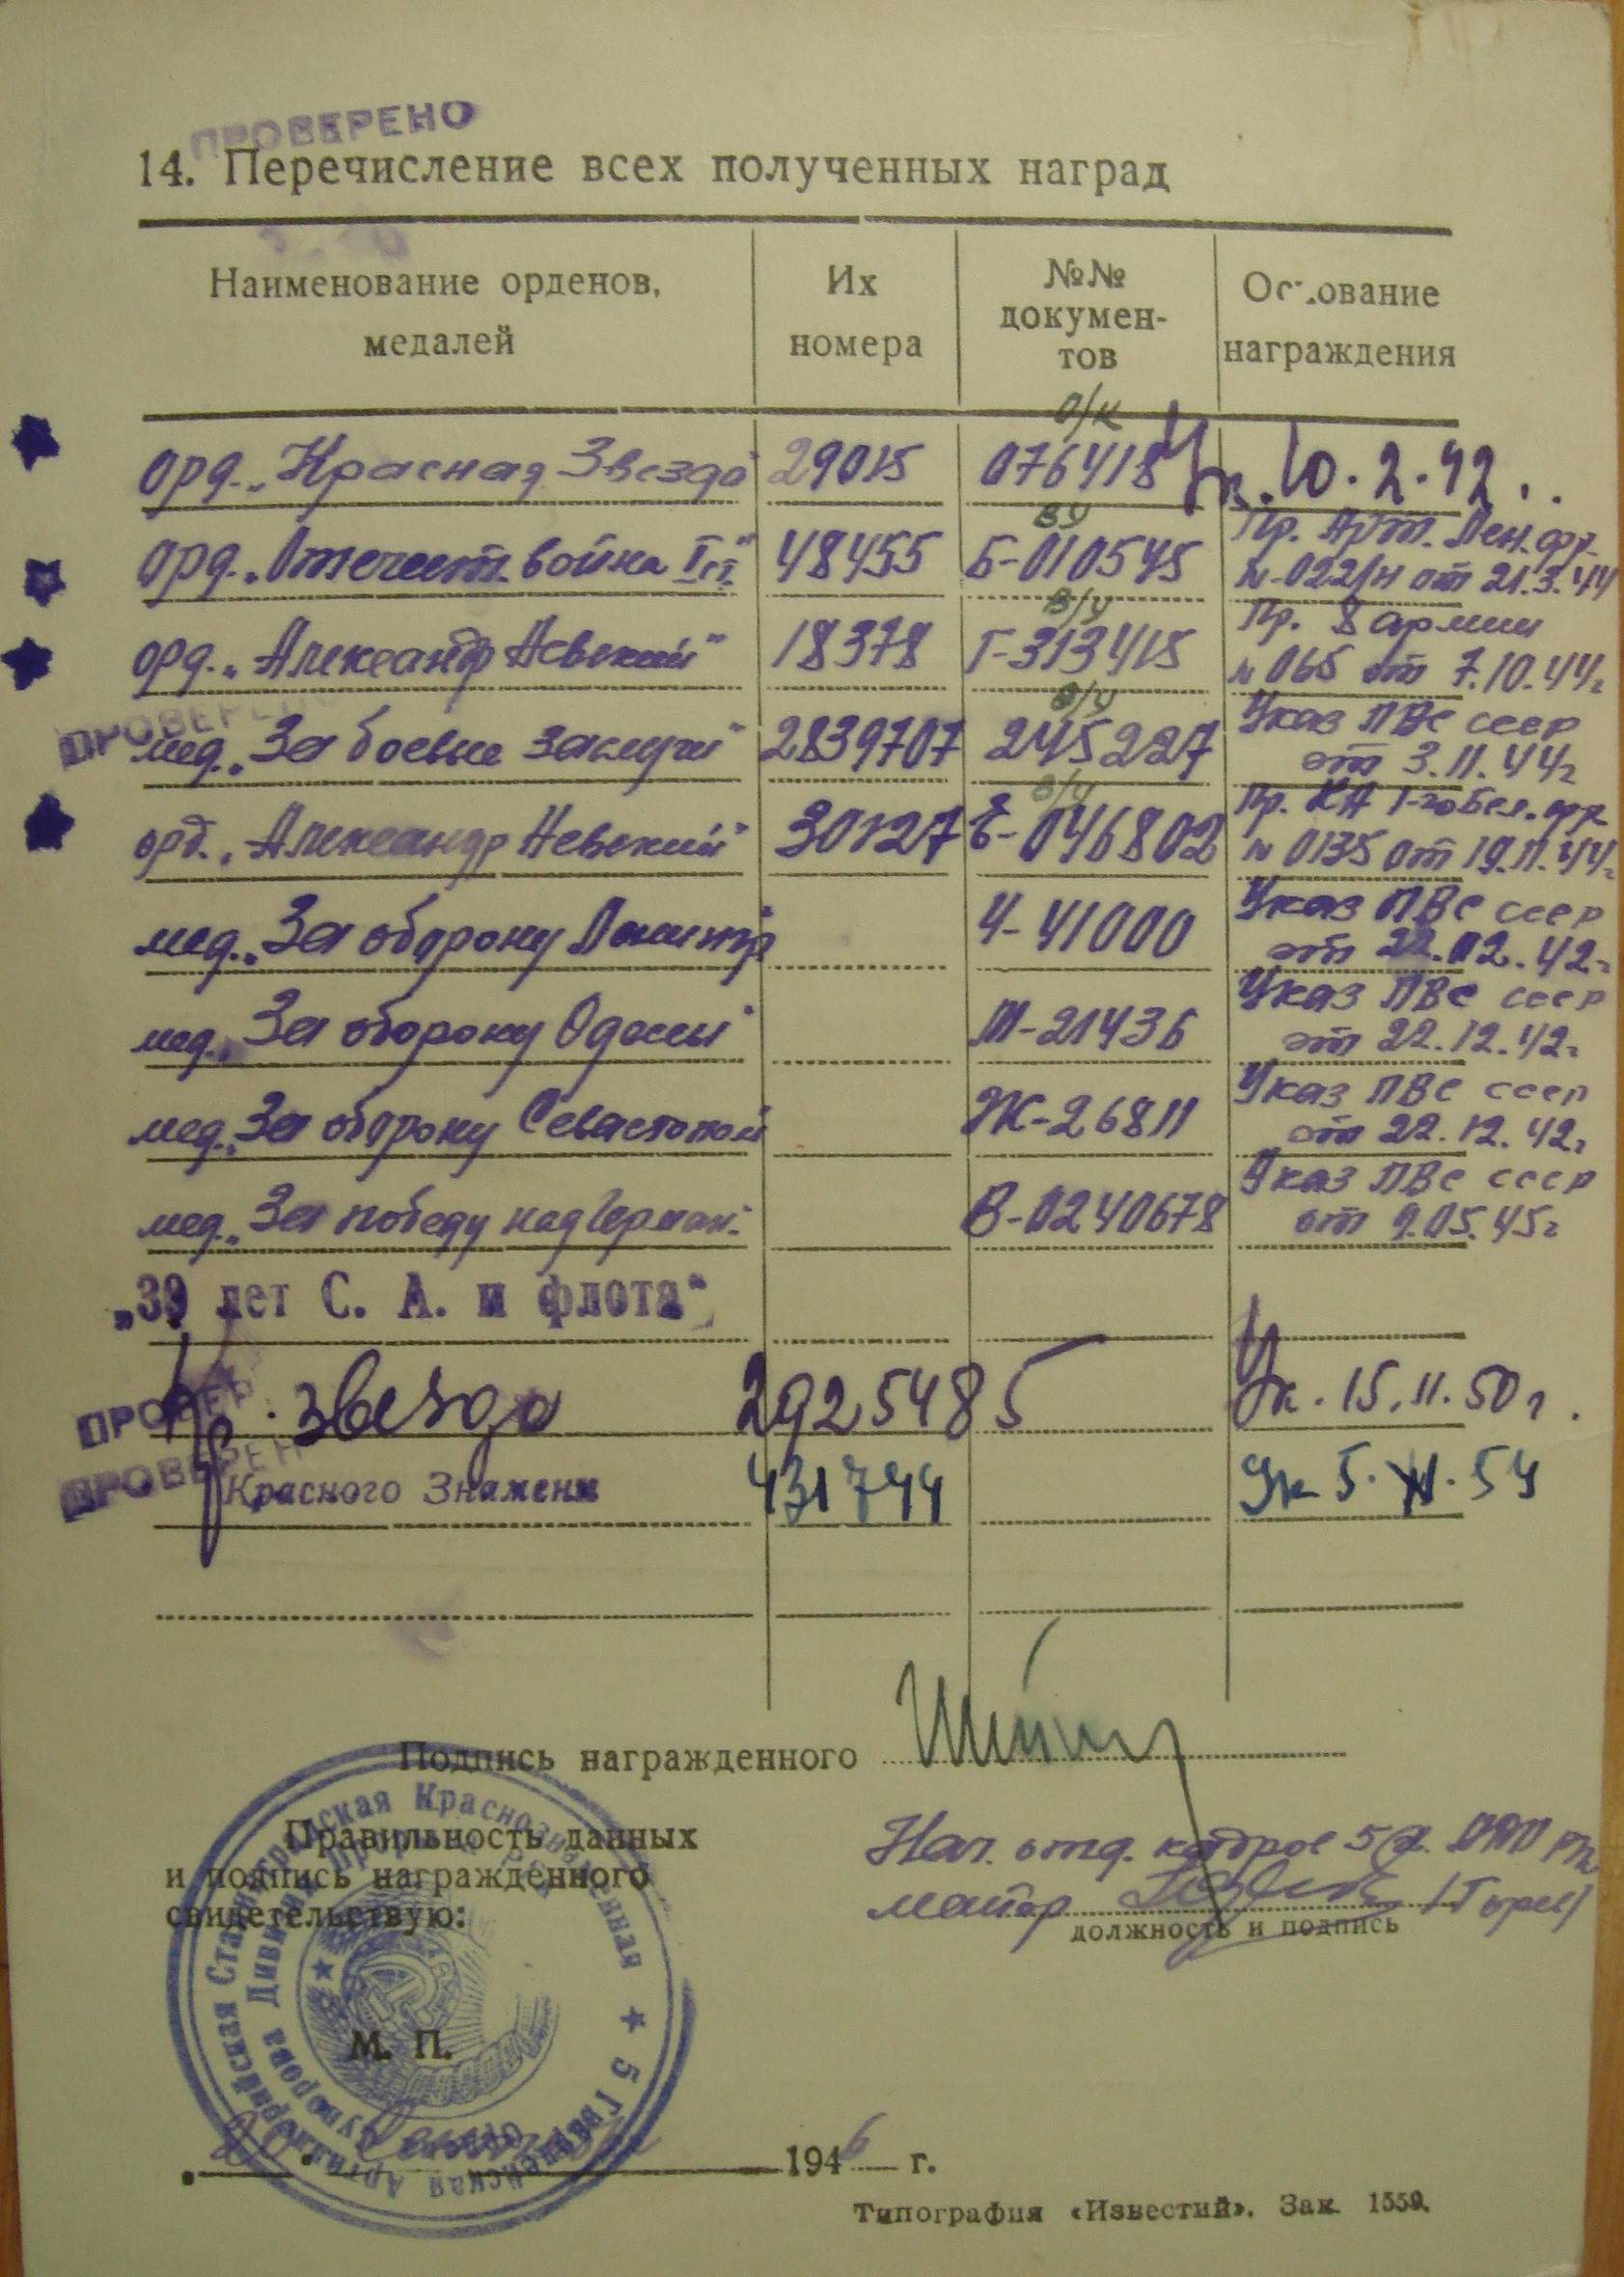 ПРОВЕРЕНО
14. Перечисление всех полученных наград
Наименование орденов, медалей
Их номера
№№ докумен-
тов
Основание награждения
о/к
орд. „Красная Звезда" 29015 076418 Ук. 10.2.42..
в/у
орд. „Отечест. война I ст." 48455 Б-010545 Пр. Арт. Лен. фр.
№-022/н от 21.3.44
в/у
орд. „Александр Невский" 18378 Г-313415 Пр. 8 армии
№ 065 от 7.10.44г
в/у
ПРОВЕРЕНО
мед. „За боевые заслуги" 2839707 245227 Указ ПВС СССР
от 3.11.44г
в/у
орд. „Александр Невский" 30127 Б-046802 Пр. КА 1-го Бел. фр
№ 0135 от 19.11.44г
мед. „За оборону Ленингр 4-41000 Указ ПВС СССР
от 22.12.42г
мед. „За оборону Одессы" М-21436 Указ ПВС СССР
от 22.12.42г
мед. „За оборону Севастопол Ж-26811 Указ ПВС СССР
от 22.12.42г
мед. „За победу над Герман." В-0240678 Указ ПВС СССР
от 9.05.45г
„30 лет С. А. и флота"
Кр. звезда 2925485 Ук. 15.11.50г.
ПРОВЕР
ПРОВЕРЕН
Красного Знамени 431744 Ук 5. XI. 54
Подпись награжденного
Правильность данных
и подпись награжденного
свидетельствую:
Нач. отд. кадров 5
майор
должность и подпись
М. П.
Артиллерийская Сталинградская Краснознаменная ★ 5 Гвардейская
Дивизия Прорыва
Суворова
194 6 г.
Типография «Известий». Зак. 1559.